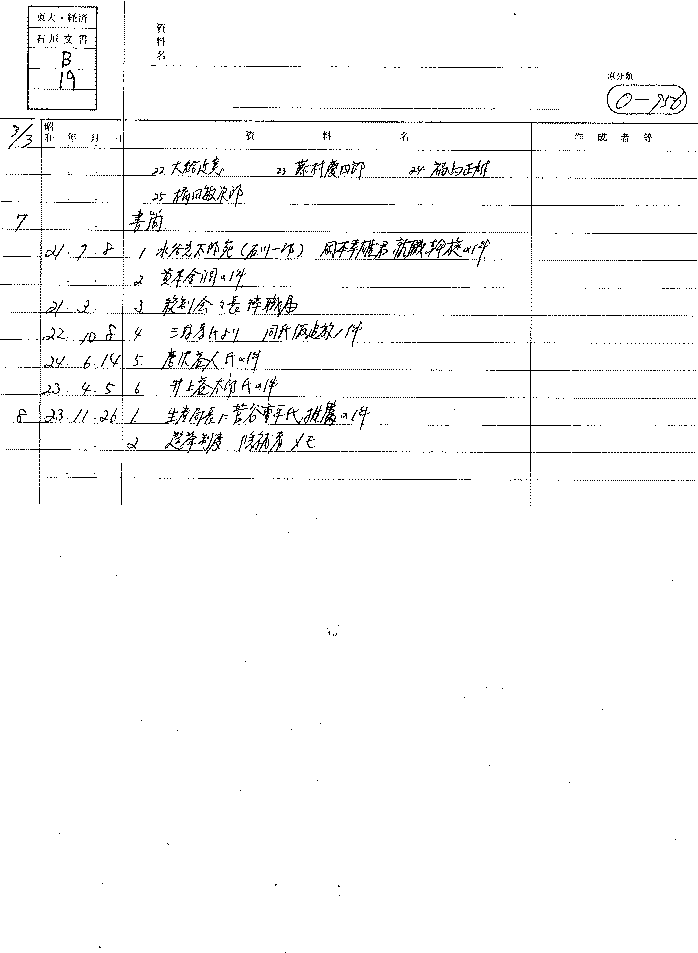 東大・経済
石川文書
B
19
資料名
原分類
0-756
3/3 昭和 年 月 日 資料名 作成者等
22 大橋 23 藤村慶四郎 24 正雄
25 橋田敏次郎
7 書簡
21・7・8 1 水谷 宛(石川一郎) 岡本 君就職斡旋の件
2 資本金調の件
21・3・ 3 会々長 職
22・10・8 4 三 氏より 同氏仮追放ノ件
24・6・14 5 氏の件
23・4・5 6 井上 太郎氏の件
8 23・11・26 1. 生産局長に菅谷重平氏推薦の件
2 選挙制度 候補者メモ